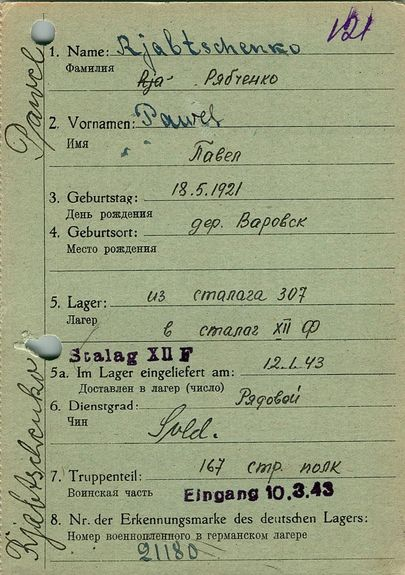 121
1. Name: Rjabtschenko
Фамилия
Rja- Рябченко
2. Vornamen: Pawel
Имя
Павел
3. Geburtstag: 18.5.1921
День рождения
4. Geburtsort: дер. Варовск
Место рождения
5. Lager: из сталага 307
Лагер
в сталаг XII Ф
Stalag XII F
5a. Im Lager eingeliefert am: 12.1.43
Доставлен в лагер (число)
6. Dienstgrad: Рядовой
Чин
Sold.
7. Truppenteil: 167 стр. полк
Воинская часть
Eingang 10.3.43
8. Nr. der Erkennungsmarke des deutschen Lagers:
Номер военнопленного в германском лагере
21180
Rjabtschenko
Pawel